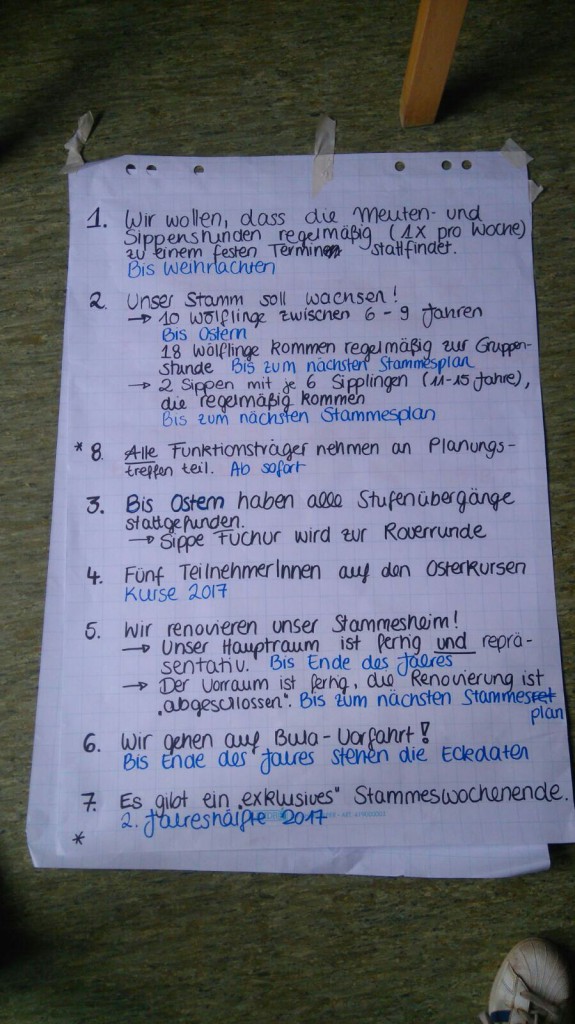 1. Wir wollen, dass die Meuten- und
Sippenstunden regelmäßig (1x pro Woche)
zu einem festen Terminen stattfindet.
Bis Weihnachten
2. Unser Stamm soll wachsen!
→ 10 Wölflinge zwischen 6 - 9 Jahren
Bis Ostern
18 Wölflinge kommen regelmäßig zur Gruppen-
stunde Bis zum nächsten Stammesplan
→ 2 Sippen mit je 6 Sipplingen (11-15 Jahre),
die regelmäßig kommen
Bis zum nächsten Stammesplan
* 8. Alle Funktionsträger nehmen an Planungs-
treffen teil. Ab sofort
3. Bis Ostern haben alle Stufenübergänge
stattgefunden.
→ Sippe Fuchur wird zur Roverrunde
4. Fünf TeilnehmerInnen auf den Osterkursen
Kurse 2017
5. Wir renovieren unser Stammesheim!
→ Unser Hauptraum ist fertig und reprä-
sentativ. Bis Ende des Jahres
→ Der Vorraum ist fertig, die Renovierung ist
"abgeschlossen". Bis zum nächsten Stammes
plan
6. Wir gehen auf Bula-Vorfahrt!
Bis Ende des Jahres stehen die Eckdaten
7. Es gibt ein "exklusives" Stammeswochenende.
2. Jahreshälfte 2017
*